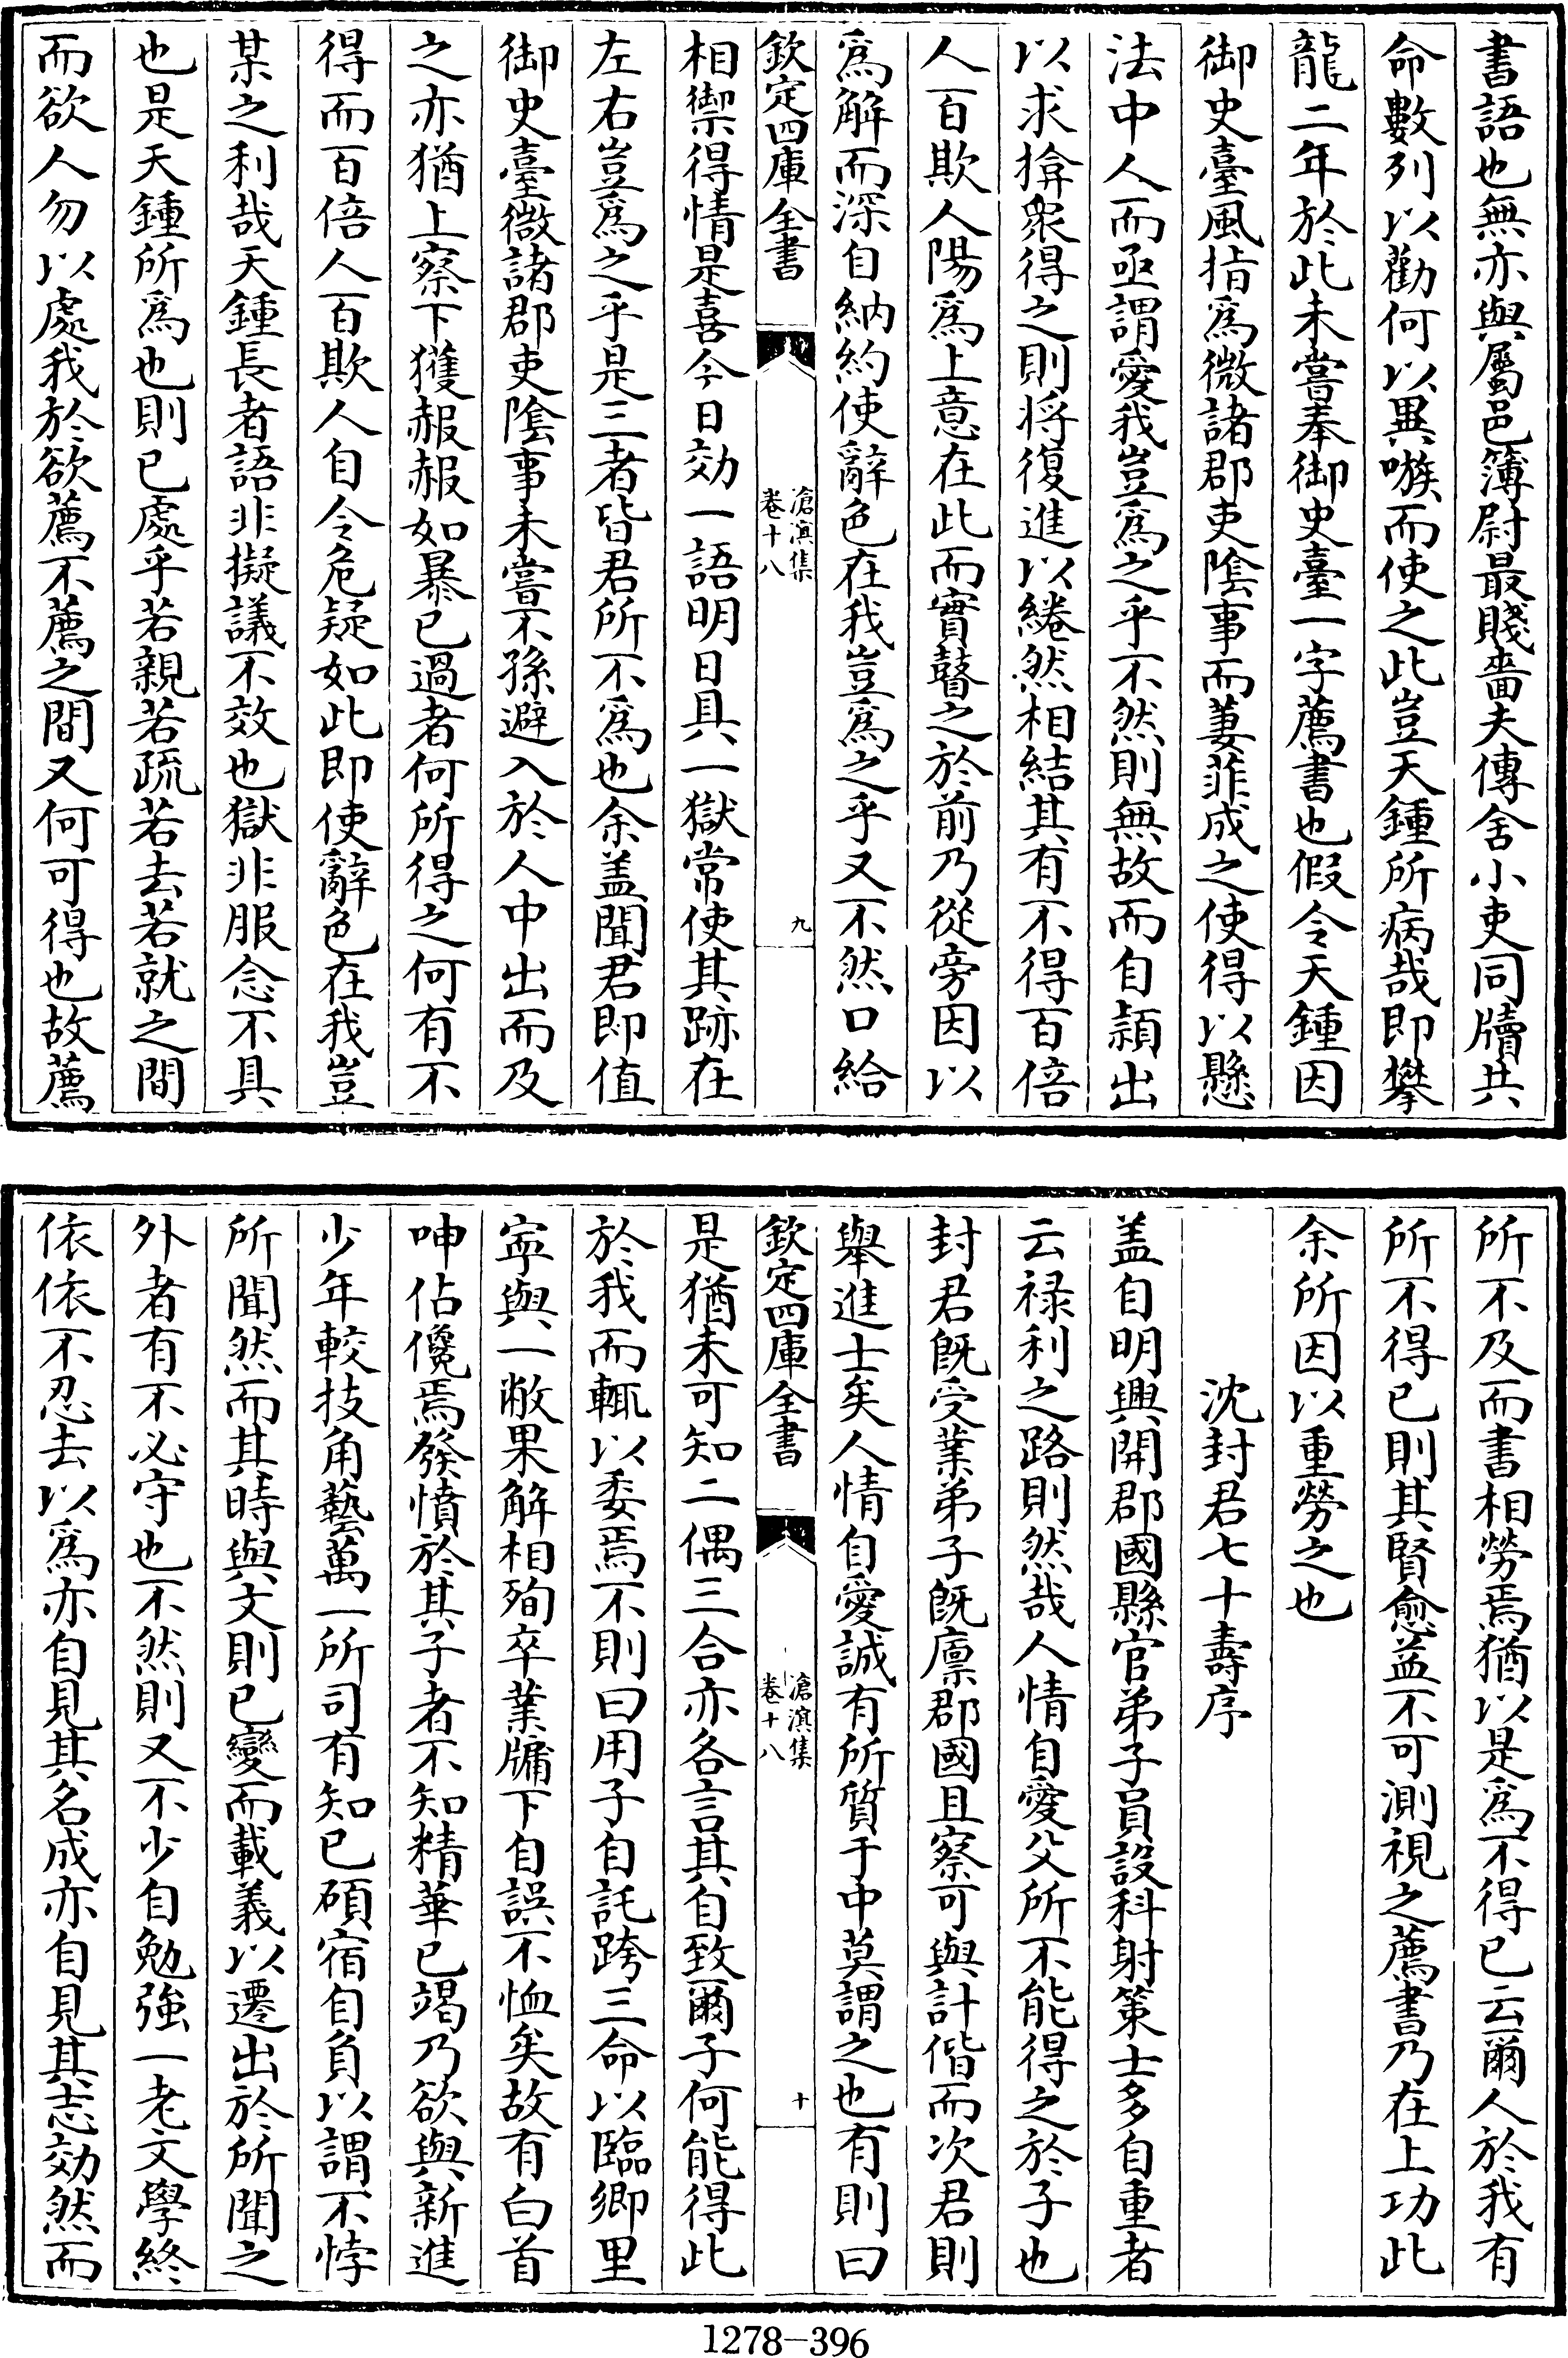 書語也無亦與屬邑簿尉最賤嗇夫傳舍小吏同牘共
命數列以勸何以異嗾而使之此豈天鍾所病哉即攀
龍二年於此未嘗奉御史臺一字薦書也假令天鍾因
御史臺風指爲微諸郡吏隂事而萋菲成之使得以懸
法中人而亟謂愛我豈爲之乎不然則無故而自頴出
以求揜衆得之則將復進以綣然相結其有不得百倍
人百欺人陽爲上意在此而實瞽之於前乃從旁因以
爲解而深自納約使辭色在我豈爲之乎又不然口給
欽定四庫全書
滄溟集
卷十八
九
相禦得情是喜今日効一語明日具一獄常使其跡在
左右豈爲之乎是三者皆君所不爲也余盖聞君即值
御史臺微諸郡吏隂事未嘗不孫避入於人中出而及
之亦猶上察下獲赧赧如暴已過者何所得之何有不
得而百倍人百欺人自令危疑如此即使辭色在我豈
某之利哉天鍾長者語非擬議不效也獄非服念不具
也是天鍾所爲也則已處乎若親若疏若去若就之間
而欲人勿以處我於欲薦不薦之間又何可得也故薦
所不及而書相勞焉猶以是爲不得已云爾人於我有
所不得已則其賢愈益不可測視之薦書乃在上功此
余所因以重勞之也
沈封君七十壽序
盖自明興開郡國縣官弟子員設科射策士多自重者
云禄利之路則然哉人情自愛父所不能得之於子也
封君既受業弟子既廪郡國且察可與計偕而次君則
舉進士矣人情自愛誠有所質于中莫謂之也有則曰
欽定四庫全書
滄溟集
卷十八
十
是猶未可知二偶三合亦各言其自致爾子何能得此
於我而輒以委焉不則曰用子自託跨三命以臨鄉里
寕與一敝果解相殉卒業牖下自誤不恤矣故有白首
呻佔儳焉發憤於其子者不知精華已竭乃欲與新進
少年較技角藝萬一所司有知已碩宿自負以謂不悖
所聞然而其時與文則已變而載義以遷出於所聞之
外者有不必守也不然則又不少自勉強一老文學終
依依不忍去以爲亦自見其名成亦自見其志効然而
1278-396